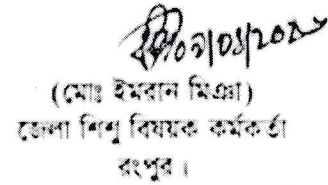 (মোঃ ইমরান মিঞা)
জেলা শিশু বিষয়ক কর্মকর্তা
রংপুর।